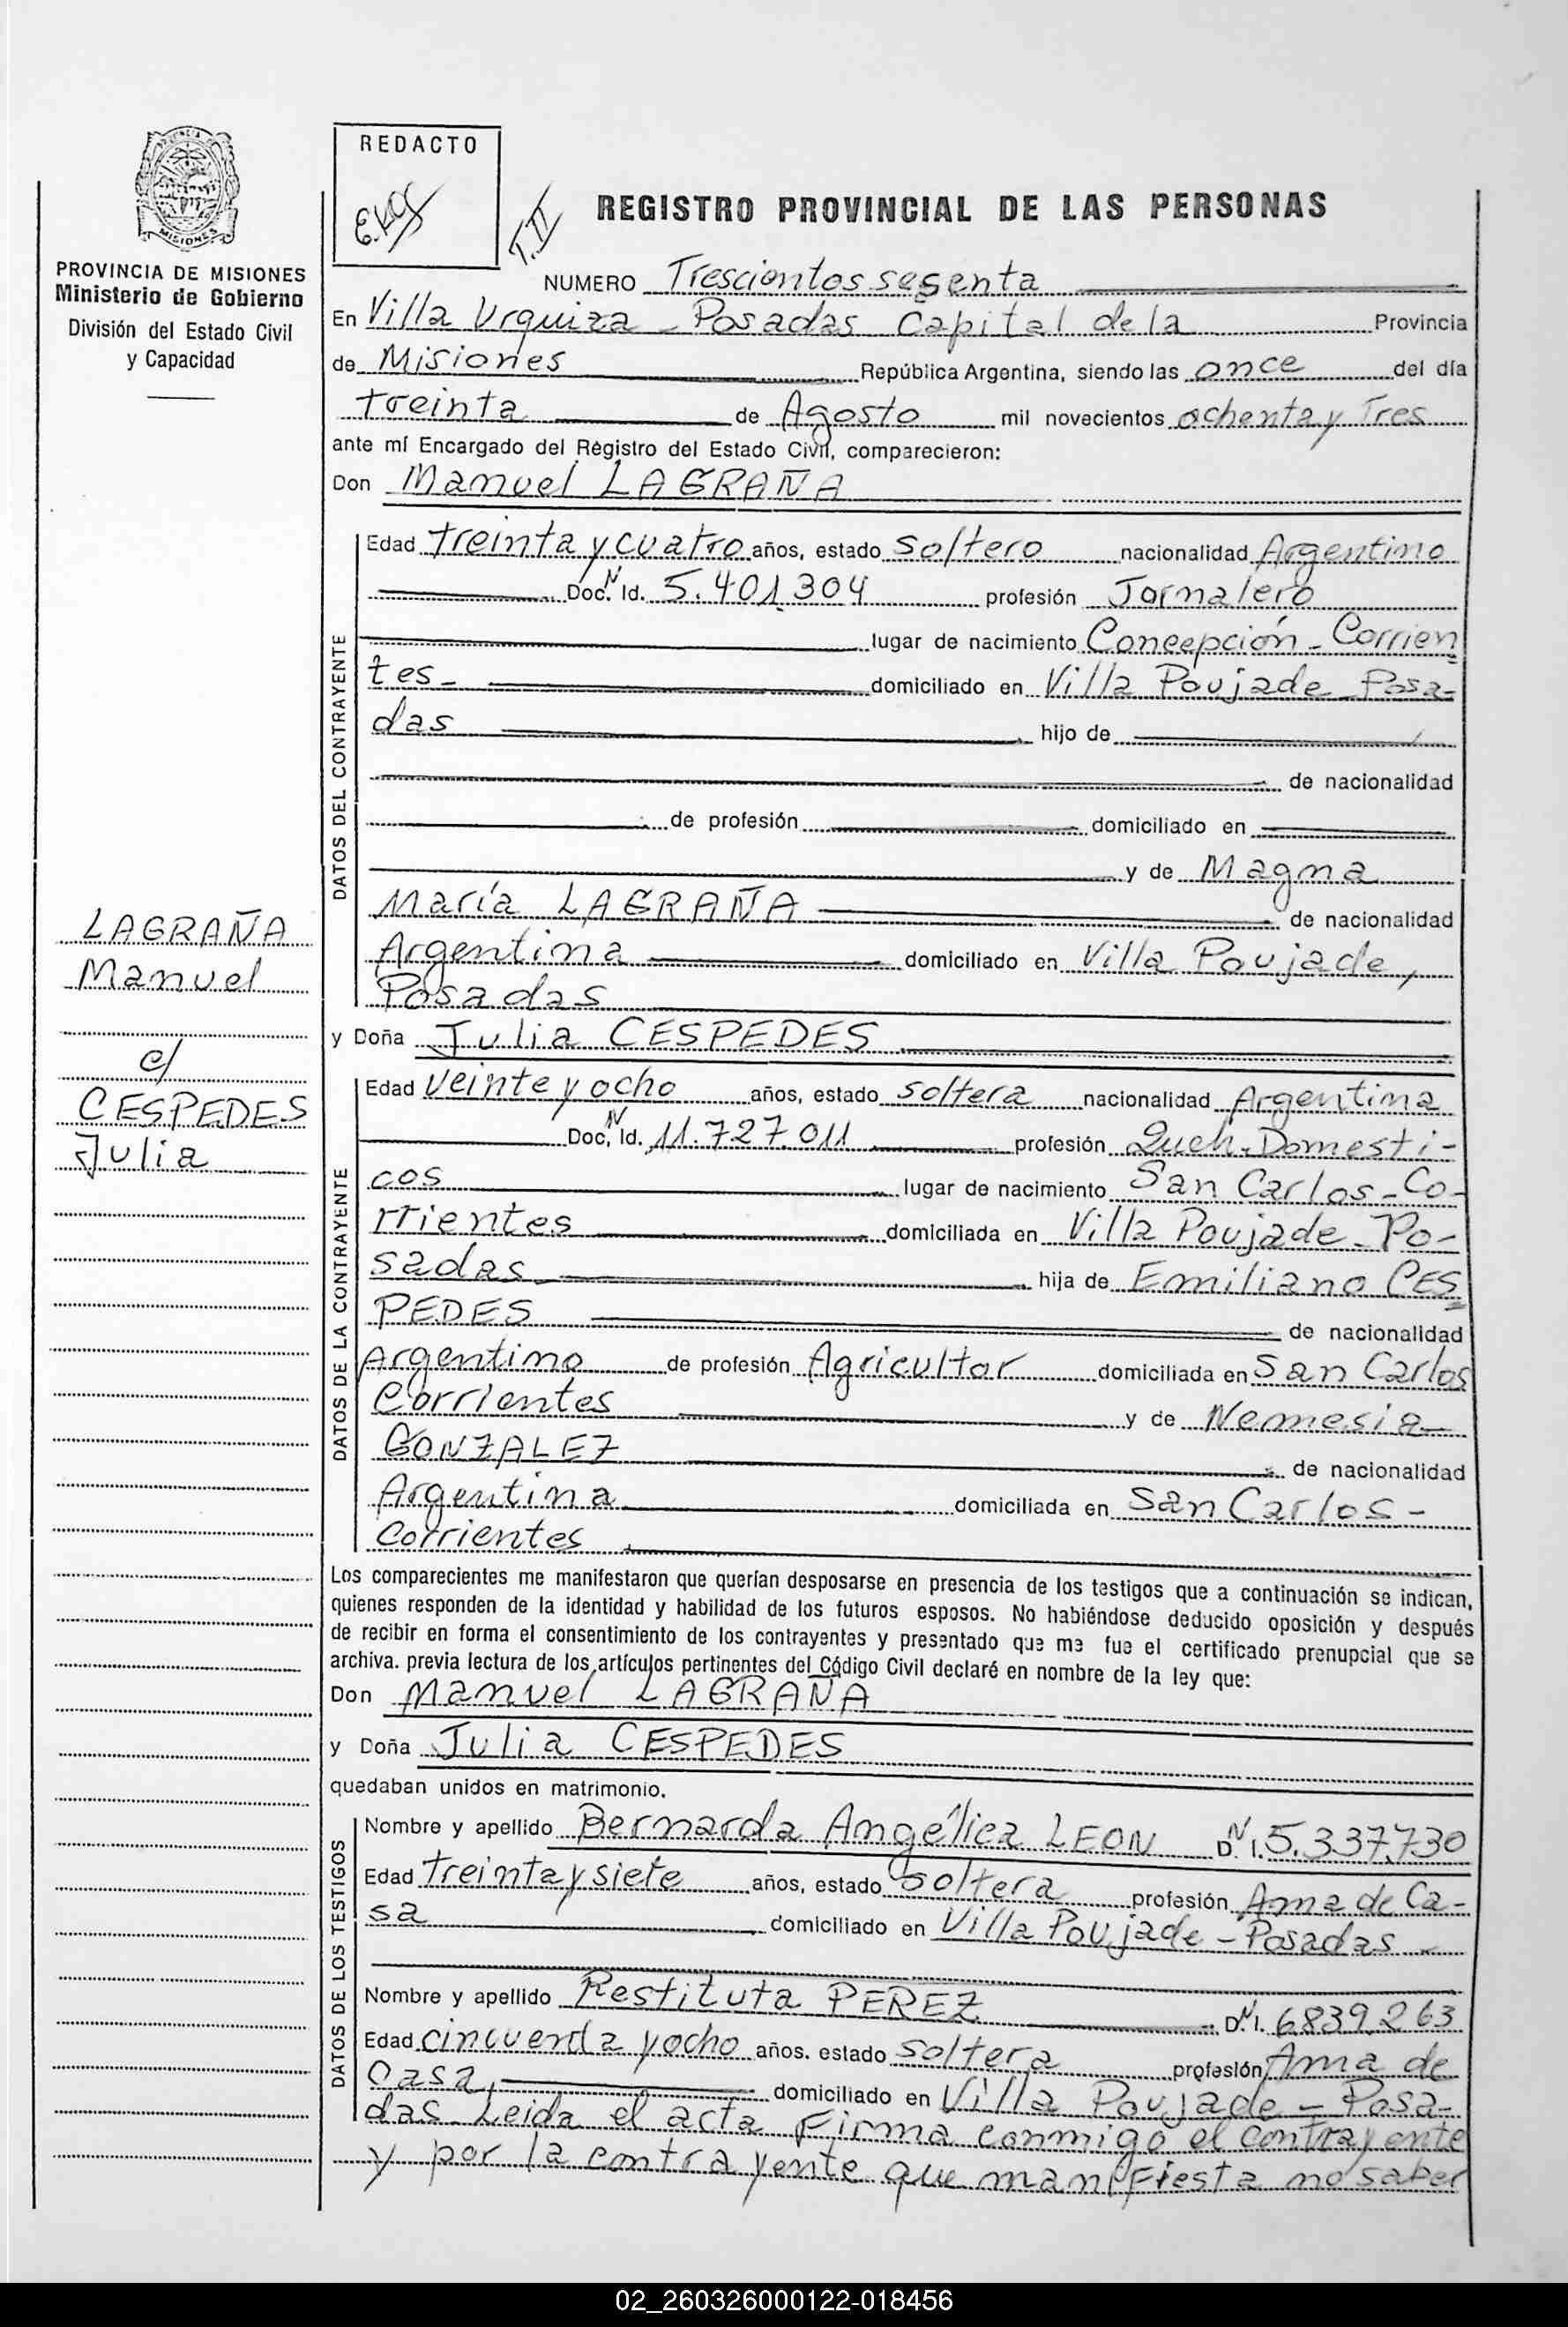 REDACTO
T. II
REGISTRO PROVINCIAL DE LAS PERSONAS
MISIONES
PROVINCIA DE MISIONES
Ministerio de Gobierno
División del Estado Civil
y Capacidad
NUMERO Trescientos sesenta
En Villa Urquiza - Posadas Capital de la Provincia
de Misiones República Argentina, siendo las once del día
treinta de Agosto mil novecientos ochenta y Tres
ante mí Encargado del Régistro del Estado Civil, comparecieron:
Don Manuel LAGRAÑA
DATOS DEL CONTRAYENTE
Edad treinta y cuatro años, estado Soltero nacionalidad Argentino
Doc. N Id. 5.401.304 profesión Jornalero
lugar de nacimiento Concepción - Corrien
tes - domiciliado en Villa Poujade - Posa-
das hijo de
de nacionalidad
de profesión domiciliado en
y de Magna
María LAGRAÑA de nacionalidad
Argentina domiciliado en Villa Poujade,
Posadas
LAGRAÑA
Manuel
c/
CESPEDES
Julia
y Doña Julia CESPEDES
DATOS DE LA CONTRAYENTE
Edad veinte y ocho años, estado soltera nacionalidad Argentina
Doc. N Id. 11.727.011 profesión Queh. Domesti-
cos lugar de nacimiento San Carlos - Co-
rrientes domiciliada en Villa Poujade - Po-
sadas hija de Emiliano CES
PEDES de nacionalidad
Argentino de profesión Agricultor domiciliada en San Carlos
Corrientes y de Nemesia
GONZALEZ de nacionalidad
Argentina domiciliada en San Carlos -
Corrientes
Los comparecientes me manifestaron que querían desposarse en presencia de los testigos que a continuación se indican,
quienes responden de la identidad y habilidad de los futuros esposos. No habiéndose deducido oposición y después
de recibir en forma el consentimiento de los contrayentes y presentado que me fue el certificado prenupcial que se
archiva. previa lectura de los artículos pertinentes del Código Civil declaré en nombre de la ley que:
Don Manuel LAGRAÑA
y Doña Julia CESPEDES
quedaban unidos en matrimonio.
DATOS DE LOS TESTIGOS
Nombre y apellido Bernarda Angélica LEON D.N.I. 5.337.730
Edad treinta y siete años, estado soltera profesión Ama de Ca-
sa domiciliado en Villa Poujade - Posadas -
Nombre y apellido Restituta PEREZ D.N.I. 6839.263
Edad cincuenta y ocho años. estado soltera profesión Ama de
casa, domiciliado en Villa Poujade - Posa-
das Leida el acta Firma conmigo el contrayente
y por la contrayente que manifiesta no saber
02_260326000122-018456